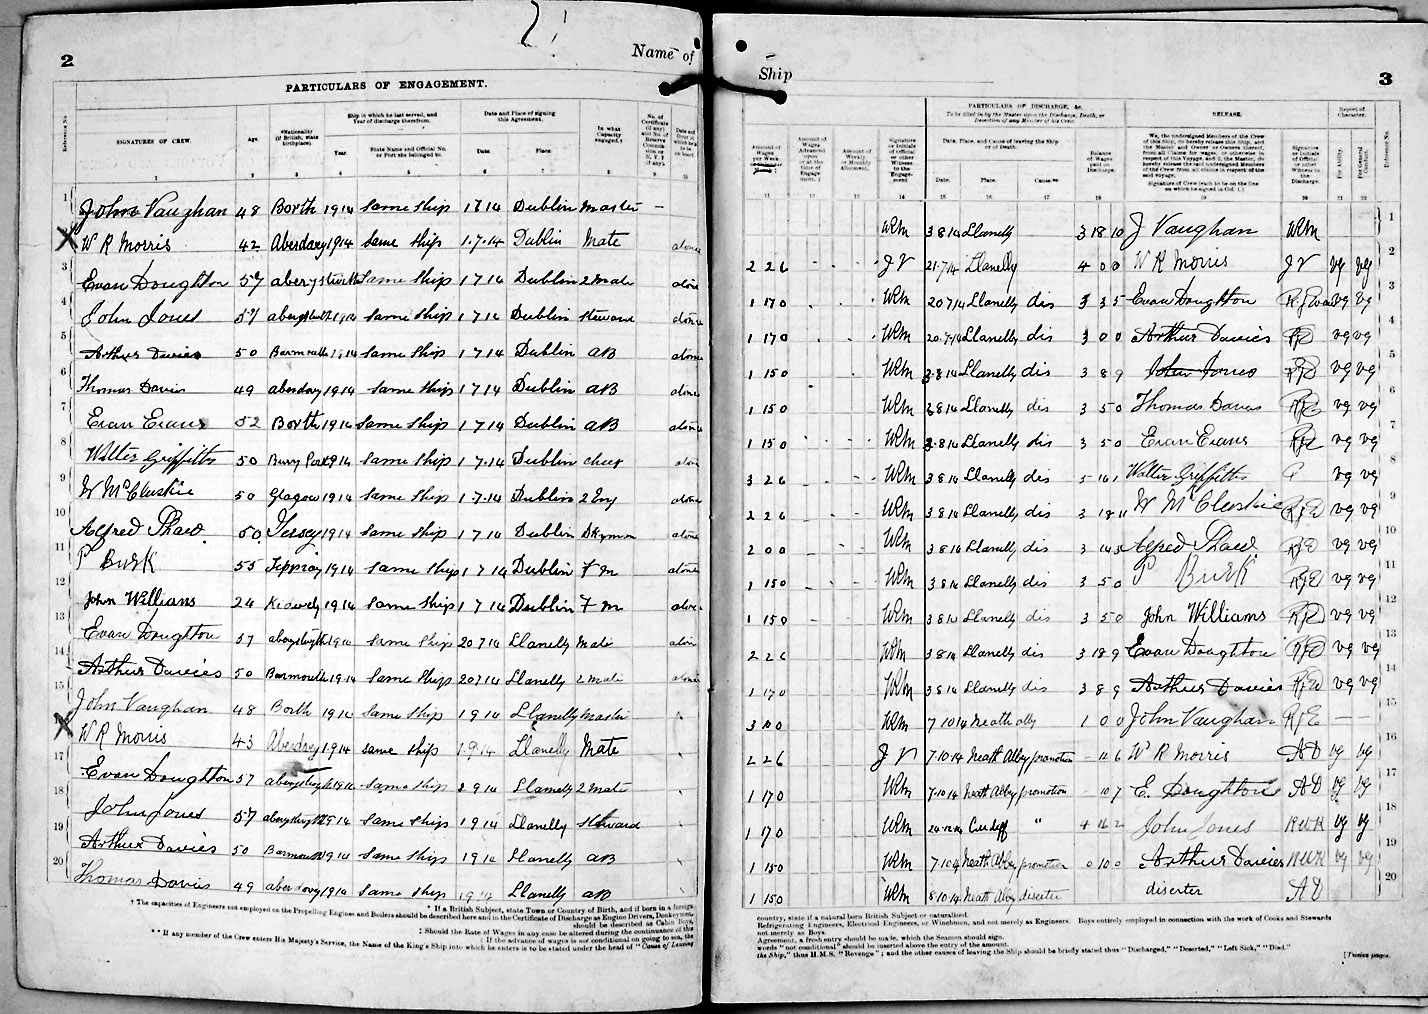 2
Name of
PARTICULARS OF ENGAGEMENT.
SIGNATURES OF CREW.
Age.
*Nationality (if British, state birthplace).
Ship in which he last served, and Year of discharge therefrom.
Year.
State Name and Official No. or Port she belonged to.
Date and Place of signing this Agreement.
Date.
Place.
In what Capacity engaged.†
1 2 3 4 5 6 7 8 9 10
1 John Vaughan 48 Borth 1914 same ship 1 7 14 Dublin Master –
X W R Morris 42 Aberdovey 1914 same ship 1.7.14 Dublin Mate
3 Evan Doughton 57 aberystwith same ship 1 7 14 Dublin 2 Mate
4 John Jones 57 1914 same ship 1 7 14 Dublin steward
5 Arthur Davies 50 Barmouth 1914 same ship 1 7 14 Dublin AB
6 Thomas Davies 49 aberdovy 1914 same ship 1 7 14 Dublin AB
7 Evan Evans 52 Borth 1914 same ship 1 7 14 Dublin AB
8 Walter Griffiths 50 Burry Port 1914 same ship 1 7.14 Dublin cheef
W McCluskie 50 Glagow 1914 same ship 1.7.14 Dublin 2 Eng
10 Alfred Thaw. 50. Jersey 1914 same ship 1 7 14 Dublin Dkyman
11 P Burk 55 1914 same ship 1 7 14 Dublin F m
12 John Williams 24 1914 same ship 1 7 14 Dublin F m
13 Evan Doughton 57 1914 same ship 20 7 14 Llanelly Mate
14 Arthur Davies 50 Barmouth 1914 same ship 20 7 14 Llanelly 2 Mate
15 John Vaughan 48 Borth 1914 same ship 1 9 14 Llanelly Master
X W R Morris 43 Aberdovy 1914 same ship 1.9.14 Llanelly Mate
17 Evan Doughton 57 same ship 2 9 14 Llanelly 2 mate
18 John Jones 57 1914 same ship 1 9 14 Llanelly steward
19 Arthur Davies 50 Barmouth 1914 same ship 1 9 14 Llanelly AB
20 Thomas Davies 49 aberdovy 1914 same ship 1 9 14 Llanelly AB
† The capacities of Engineers not employed on the Propelling Engines and Boilers should be described here and in the Certificate of Discharge as Engine Drivers, Donkeymen,
* If a British Subject, state Town or Country of Birth, and if born in a foreign
should be described as Cabin Boys,
‡ Should the Rate of Wages in any case be altered during the continuance of this
| If the advance of wages is not conditional on going to sea, the
** If any member of the Crew enters His Majesty's Service, the Name of the King's Ship into which he enters is to be stated under the head of "Causes of Leaving
Ship
3
PARTICULARS OF DISCHARGE, &c.
To be filled in by the Master upon the Discharge, Death, or Desertion of any Member of his Crew.
RELEASE.
Report of Character.
Amount of Wages per Week
Amount of Wages Advanced upon or at the time of Engagement.
Amount of Weekly or Monthly Allotment.
Signature or Initials of Official or other Witness to the Engagement
Date, Place, and Cause of leaving the Ship or of Death.
Date.
Place.
Cause.**
Balance of Wages paid on Discharge.
We, the undersigned Members of the Crew of this Ship, do hereby release this Ship, and the Master and Owner or Owners thereof, from all Claims for wages, or otherwise in respect of this Voyage; and I, the Master, do hereby release the undersigned Members of the Crew from all claims in respect of the said voyage.
Signature of Crew (each to be on the line on which he signed in Col. 1.)
Signature or Initials of Official or other Witness to the Discharge.
For Ability.
For General Conduct.
Reference No.
11 12 13 14 15 16 17 18 19 20 21 22
WRM 3 8 14 Llanelly 3 18 10 J Vaughan WRM 1
2 2 6 JV 21.7.14 Llanelly 4 0 0 W R Morris JV vg vg 2
1 17 0 WRM 20 7 14 Llanelly dis 3 3 5 Evan Doughton vg vg 3
1 17 0 WRM 20.7.14 Llanelly dis 3 0 0 Arthur Davies vg vg
1 15 0 WRM 3 8 14 Llanelly dis 3 8 9 John Jones vg vg 5
1 15 0 WRM 3 8 14 Llanelly dis 3 5 0 Thomas Davies vg vg 6
1 15 0 WRM 3 8 14 Llanelly dis 3 5 0 Evan Evans vg vg 7
3 2 6 WRM 3 8 14 Llanelly dis 5 16 1 Walter Griffiths vg vg 8
2 2 6 WRM 3 8 14 Llanelly dis 3 18 11 W McCluskie vg vg 9
2 0 0 WRM 3 8 14 Llanelly dis 3 14 5 Alfred Thaw. vg vg 10
1 15 0 WRM 3 8 14 Llanelly dis 3 5 0 P Burk vg vg 11
1 15 0 WRM 3 8 14 Llanelly dis 3 5 0 John Williams vg vg 12
2 2 6 WRM 3 8 14 Llanelly dis 3 18 9 Evan Doughton vg vg 13
1 17 0 WRM 3 8 14 Llanelly dis 3 8 9 Arthur Davies vg vg 14
WRM 7 10 14 Neath ally 1 0 0 John Vaughan RJE – – 15
2 2 6 JV 7.10.14 Neath Abby promotion – 11 6 W R Morris AD vg vg 16
1 17 0 WRM 7.10.14 Neath Abby promotion – 10 7 E. Doughton AD vg vg 17
1 17 0 WRM Cardiff " 4 16 2 John Jones RWR vg vg 18
1 15 0 WRM 7 10 14 Neath Abby promotion 0 10 0 Arthur Davies RWR vg vg 19
1 15 0 WRM 8 10 14 Neath Abby diserter diserter AD 20
country, state if a natural born British Subject or naturalized.
Refrigerating Engineers, Electrical Engineers, or Winchmen, and not merely as Engineers. Boys entirely employed in connection with the work of Cooks and Stewards
not merely as Boys.
Agreement, a fresh entry should be made, which the Seaman should sign.
words "not conditional" should be inserted above the entry of the amount.
the Ship," thus H.M.S. "Revenge"; and the other causes of leaving the Ship should be briefly stated thus "Discharged," "Deserted," "Left Sick," "Died."
[Twelve pages.